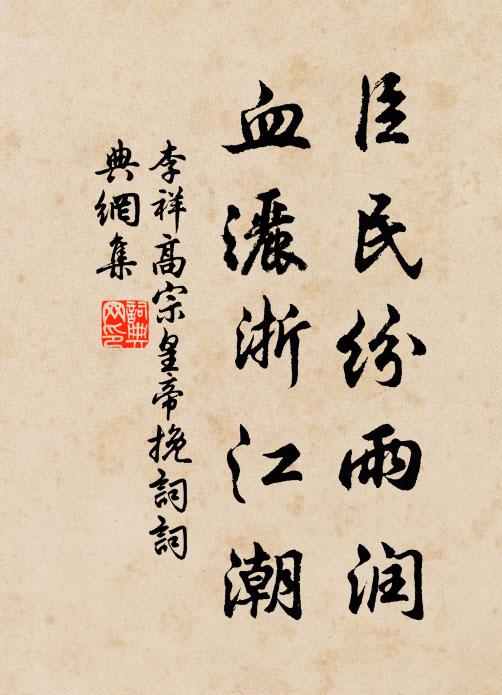 臣民纷雨润
血灑浙江潮
李祥高宗皇帝挽詞詞
典網集
詞典
网印